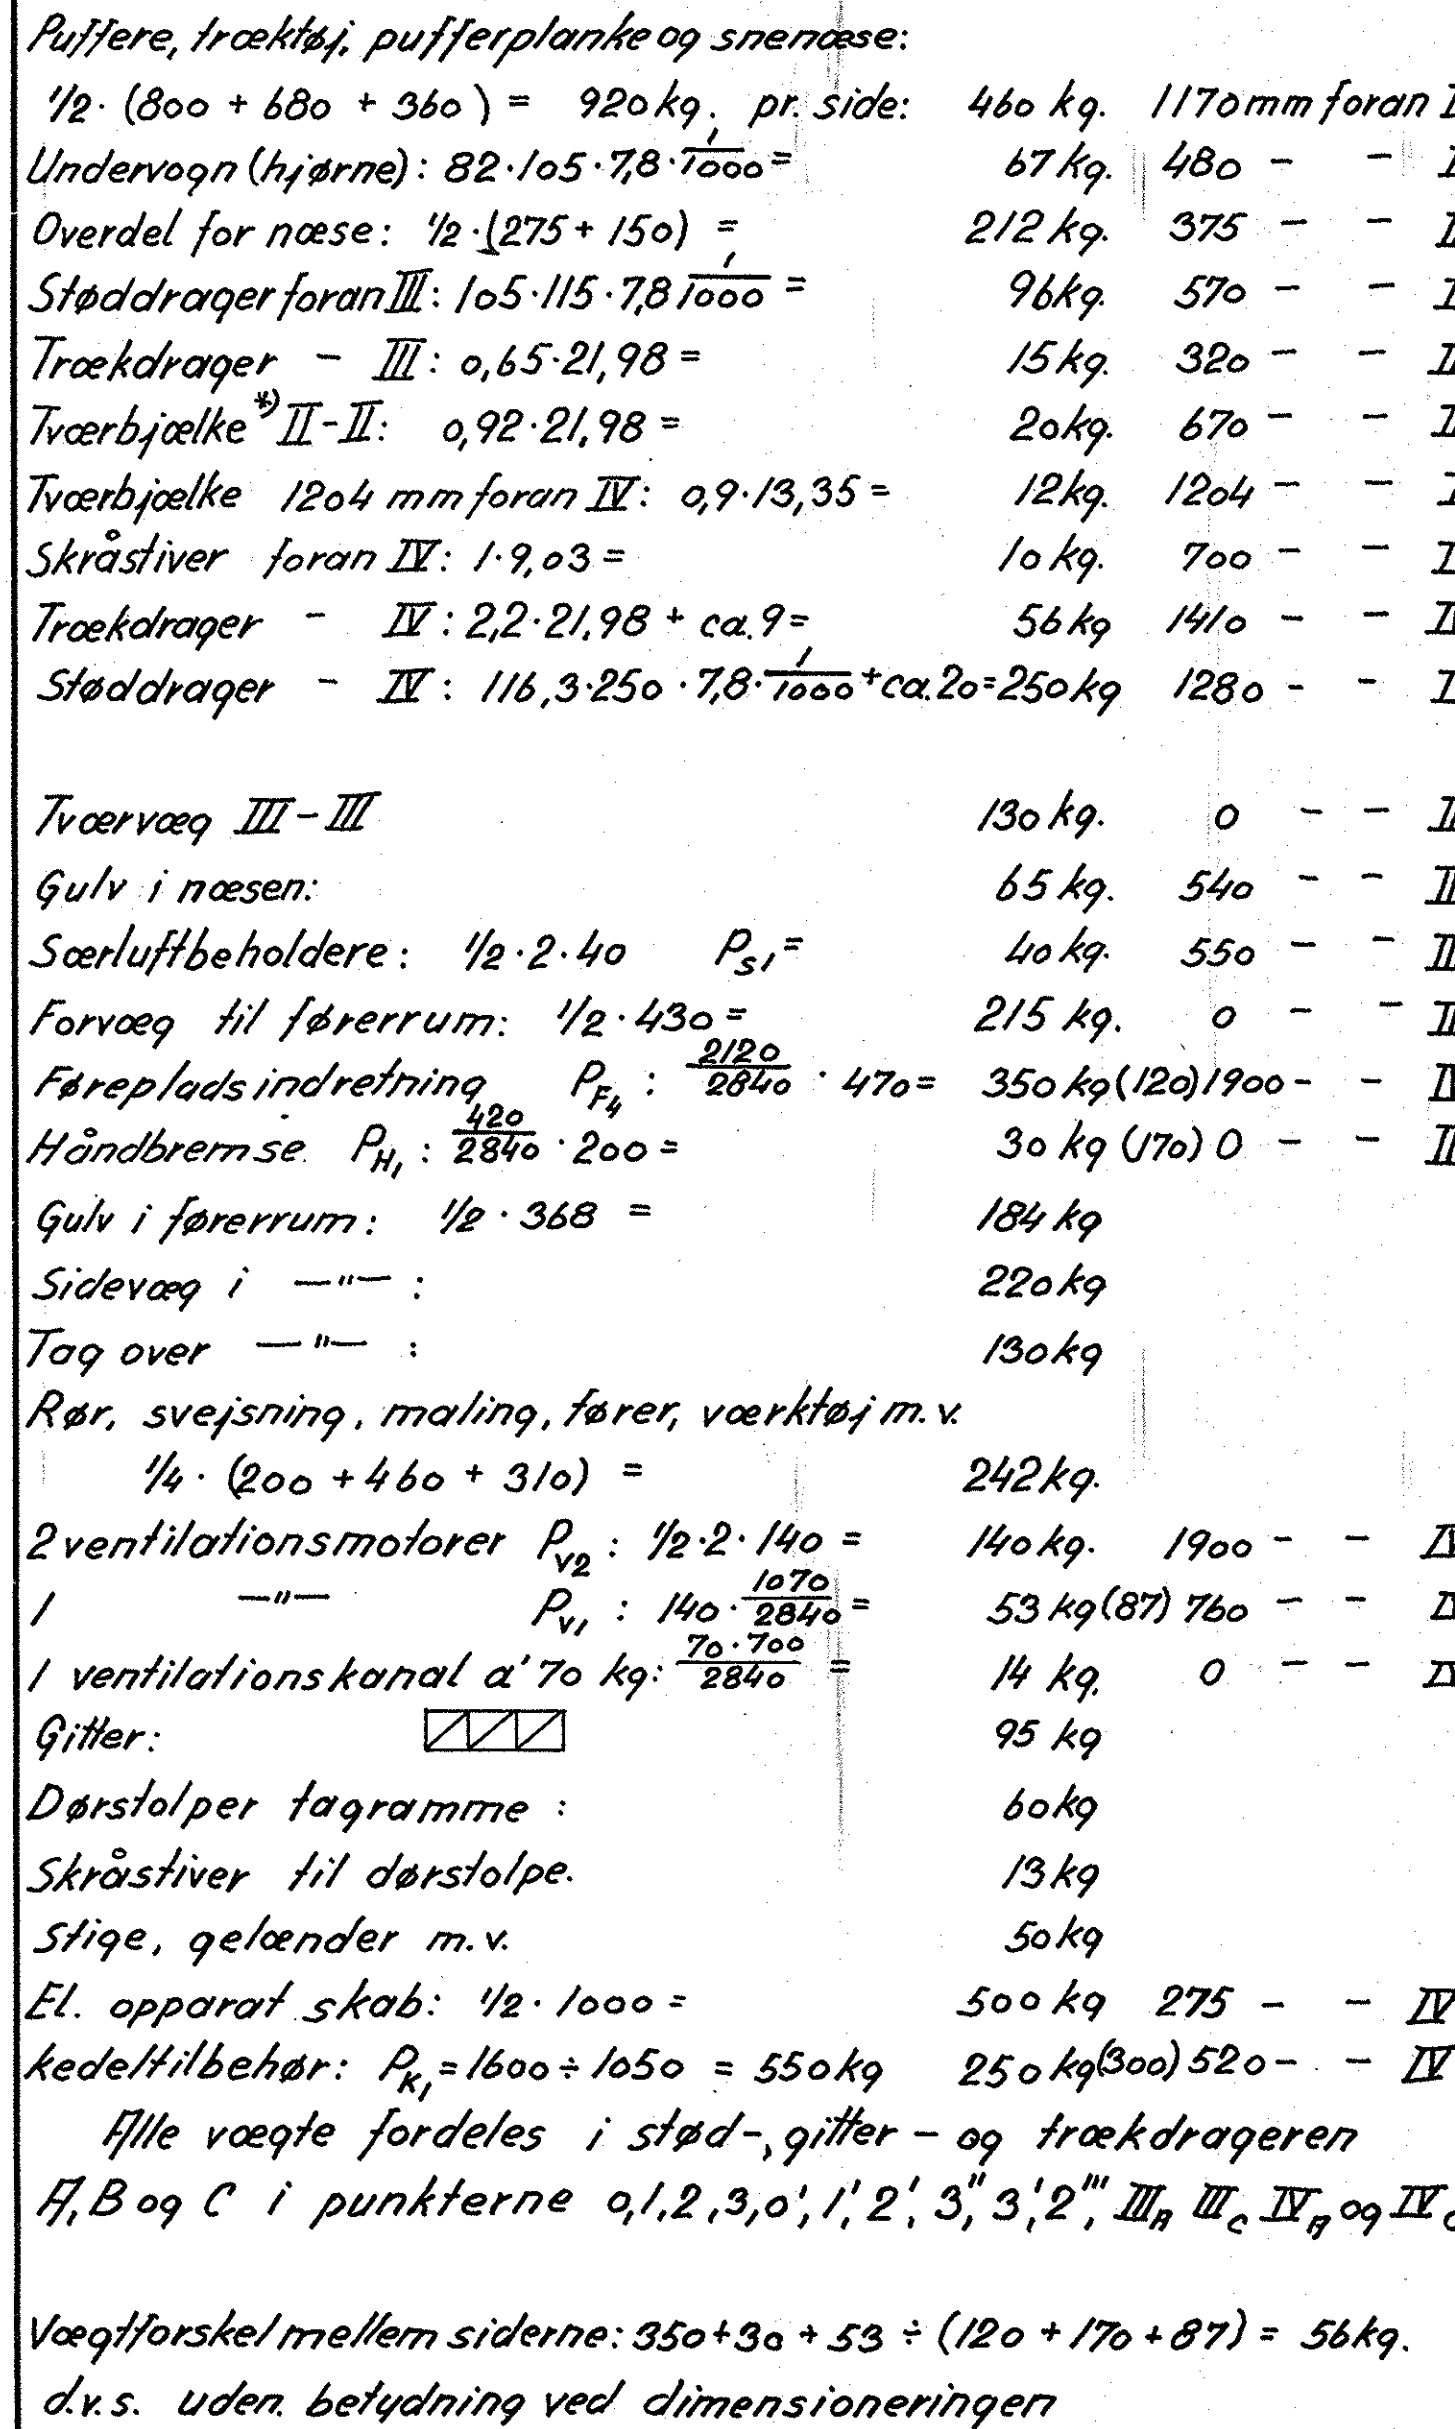 Puffere, træktøj, pufferplanke og snenæse:
1/2 · (800 + 680 + 360) = 920 kg. pr. side: 460 kg. 1170 mm foran
Undervogn (hjørne): 82·105·7,8·1/1000 = 67 kg. 480 - -
Overdel for næse: 1/2·(275 + 150) = 212 kg. 375 - -
Støddrager foran III: 105·115·7,8 1/1000 = 96 kg. 570 - -
Trækdrager - III: 0,65·21,98 = 15 kg. 320 - -
Tværbjælke *) II-II: 0,92·21,98 = 20 kg. 670 - -
Tværbjælke 1204 mm foran IV: 0,9·13,35 = 12 kg. 1204 - -
Skråstiver foran IV: 1·9,03 = 10 kg. 700 - -
Trækdrager - IV: 2,2·21,98 + ca. 9 = 56 kg 1410 - -
Støddrager - IV: 116,3·250·7,8·1/1000 + ca. 20 = 250 kg 1280 - -
Tværvæg III-III 130 kg. 0 - -
Gulv i næsen: 65 kg. 540 - -
Særluftbeholdere: 1/2·2·40 Ps1 = 40 kg. 550 - -
Forvæg til førerrum: 1/2·430 = 215 kg. 0 - -
Føreplads indretning PF4: 2120/2840 · 470 = 350 kg (120) 1900 - -
Håndbremse. PH1: 420/2840 · 200 = 30 kg (170) 0 - -
Gulv i førerrum: 1/2 · 368 = 184 kg
Sidevæg i —"— : 220 kg
Tag over —"— : 130 kg
Rør, svejsning, maling, fører, værktøj m.v.
1/4 · (200 + 460 + 310) = 242 kg.
2 ventilationsmotorer Pv2: 1/2·2·140 = 140 kg. 1900 - -
1 —"— Pv1: 140·1070/2840 = 53 kg (87) 760 - -
1 ventilationskanal a' 70 kg: 70·700/2840 = 14 kg. 0 - -
Gitter: 95 kg
Dørstolper tagramme : 60 kg
Skråstiver til dørstolpe. 13 kg
Stige, gelænder m.v. 50 kg
El. opparat skab: 1/2·1000 = 500 kg 275 - - IV
kedeltilbehør: PK1 = 1600 ÷ 1050 = 550 kg 250 kg (300) 520 - - IV
Alle vægte fordeles i stød-, gitter- og trækdrageren
A, B og C i punkterne 0, 1, 2, 3, 0', 1', 2', 3'', 3', 2''', IIIA IIIC IVA og IVC
Vægtforskel mellem siderne: 350 + 30 + 53 ÷ (120 + 170 + 87) = 56 kg.
d.v.s. uden betydning ved dimensioneringen